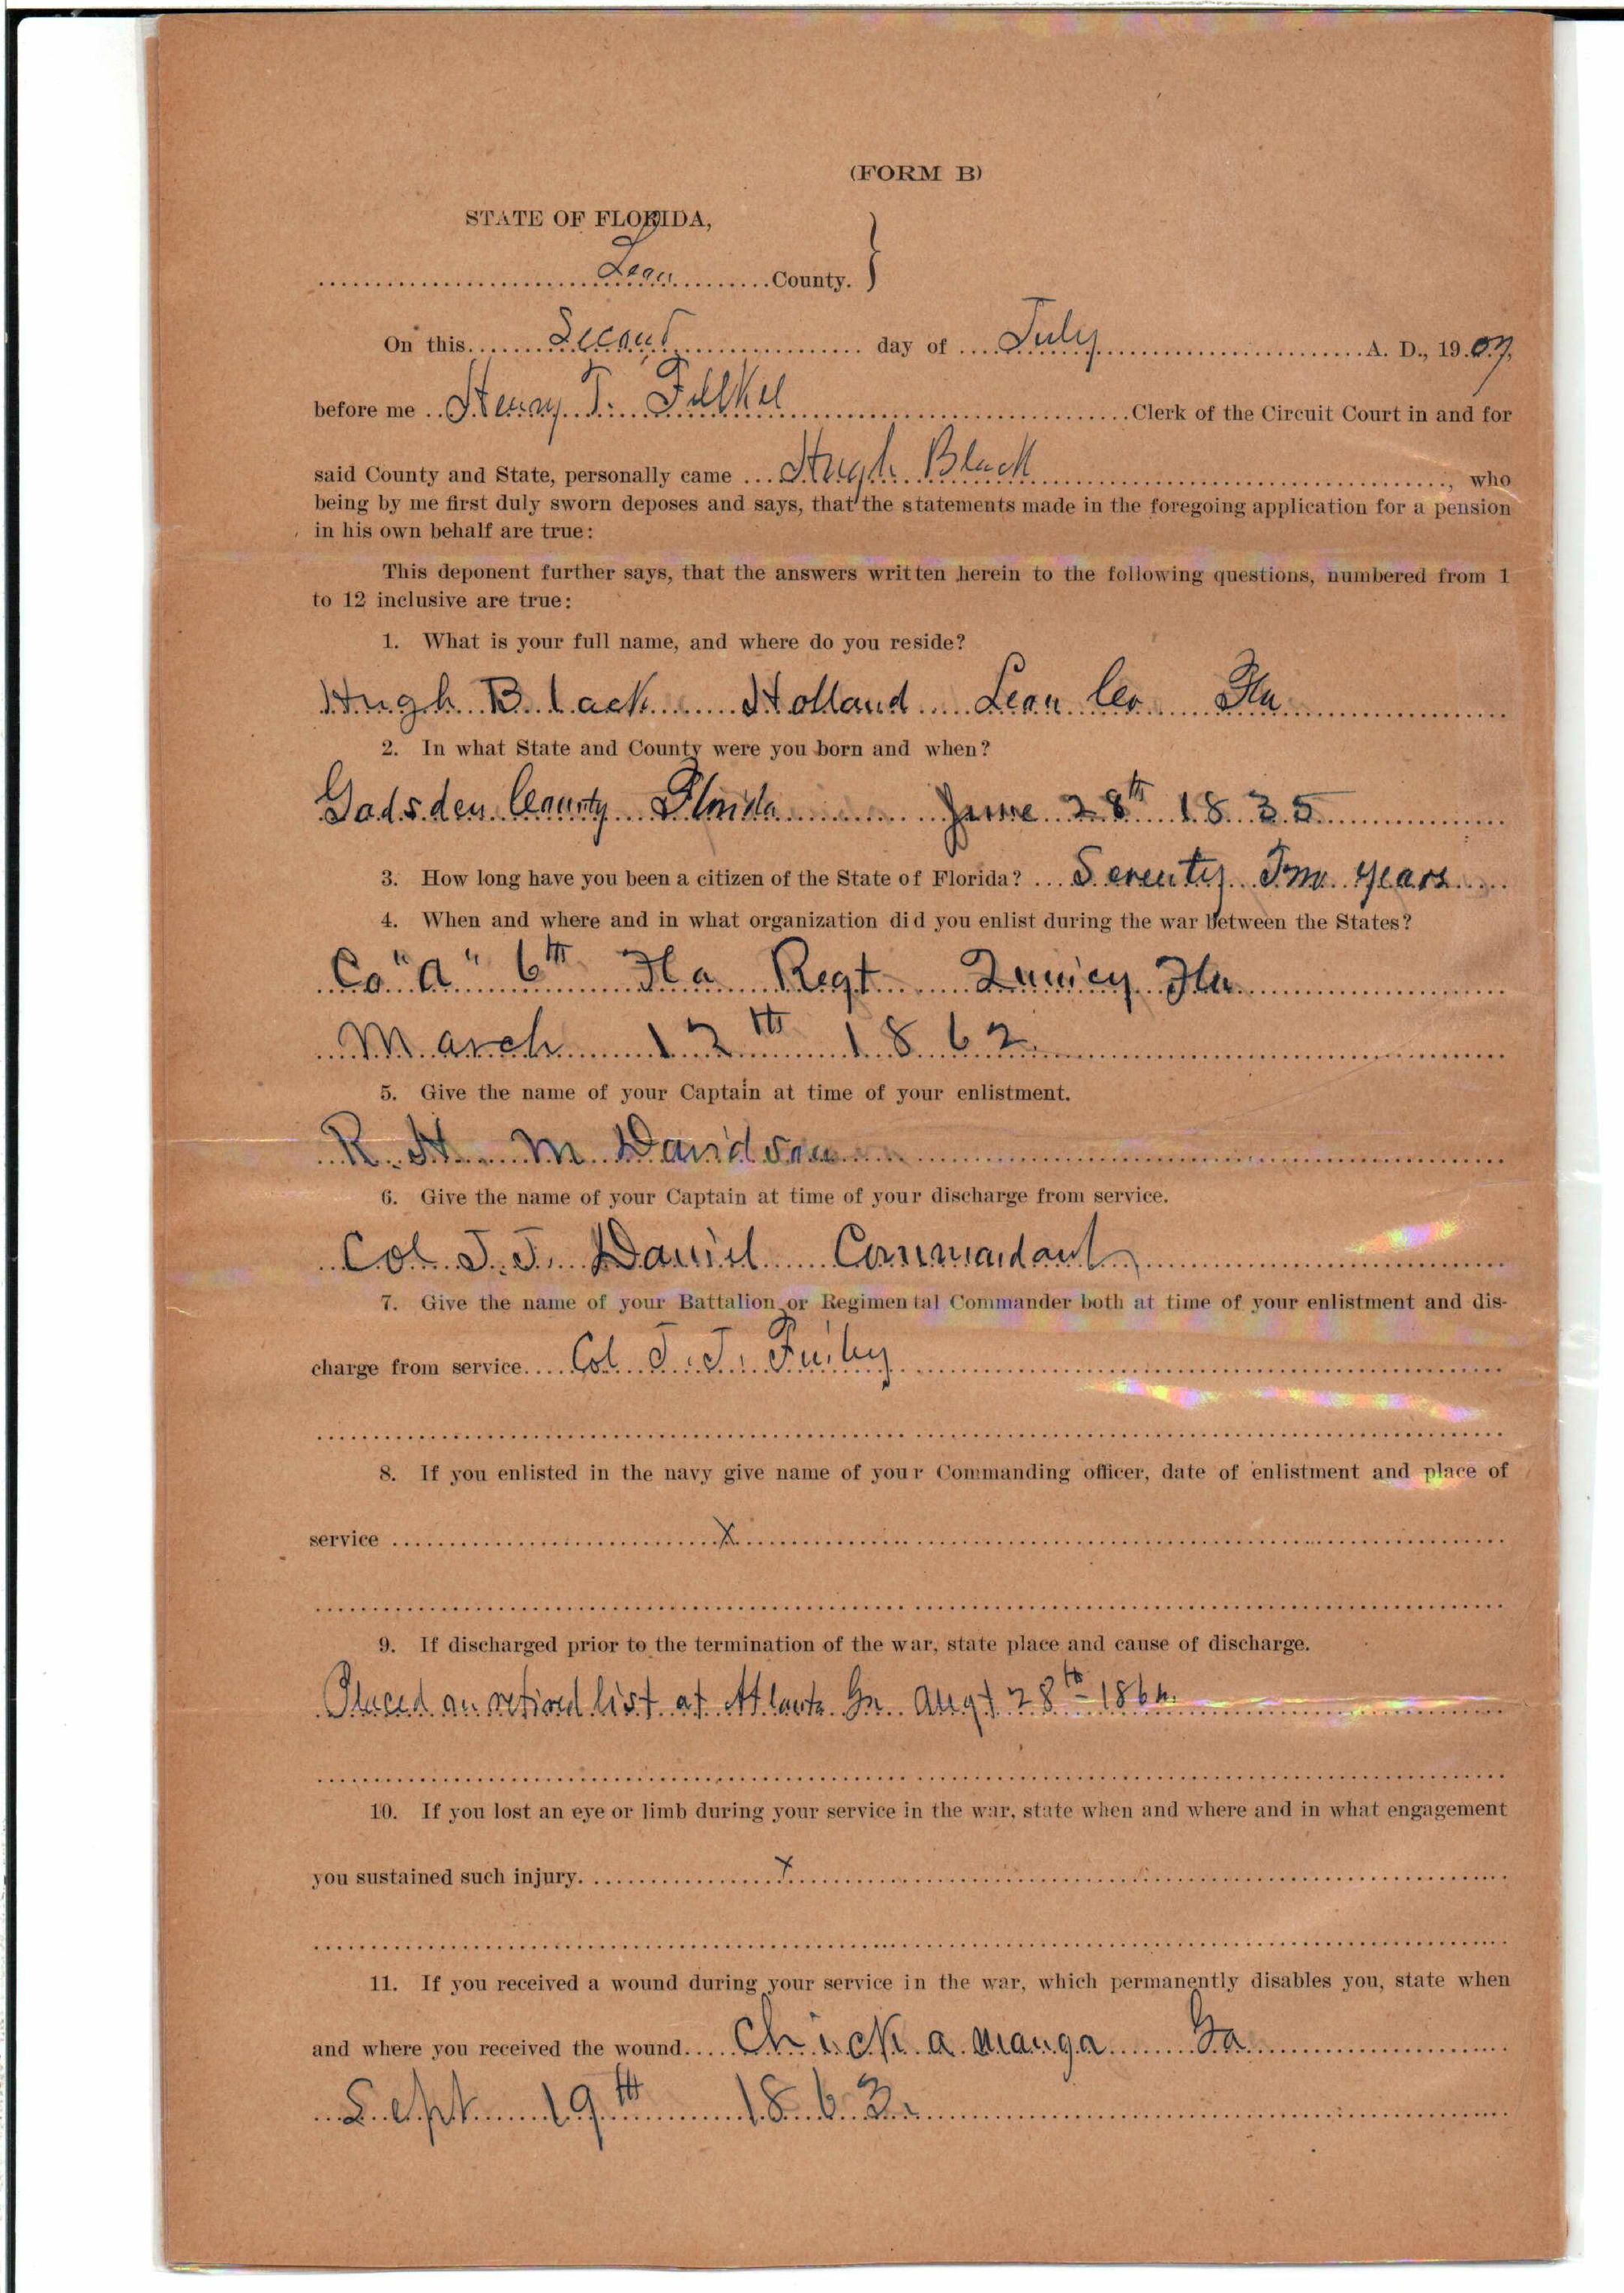 (FORM B)
STATE OF FLORIDA,
Leon County.
On this Second day of July A. D., 1907,
before me Henry T. Felkel Clerk of the Circuit Court in and for
said County and State, personally came Hugh Black, who
being by me first duly sworn deposes and says, that the statements made in the foregoing application for a pension
in his own behalf are true:
This deponent further says, that the answers written herein to the following questions, numbered from 1
to 12 inclusive are true:
1. What is your full name, and where do you reside?
Hugh Black Holland Leon Co Fla
2. In what State and County were you born and when?
Gadsden County Florida June 28th 1835
3. How long have you been a citizen of the State of Florida? Seventy Two years
4. When and where and in what organization did you enlist during the war between the States?
Co "A" 6th Fla Regt Quincy Fla
March 12th 1862
5. Give the name of your Captain at time of your enlistment.
R. H. M Davidson
6. Give the name of your Captain at time of your discharge from service.
Col J. J. Daniel Commandant
7. Give the name of your Battalion or Regimental Commander both at time of your enlistment and dis-
charge from service. Col J. J. Finley
8. If you enlisted in the navy give name of your Commanding officer, date of enlistment and place of
service X
9. If discharged prior to the termination of the war, state place and cause of discharge.
Placed on retired list at Atlanta Ga. Augt 28th 1864.
10. If you lost an eye or limb during your service in the war, state when and where and in what engagement
you sustained such injury. X
11. If you received a wound during your service in the war, which permanently disables you, state when
and where you received the wound. Chickamauga Ga
Sept 19th 1863.